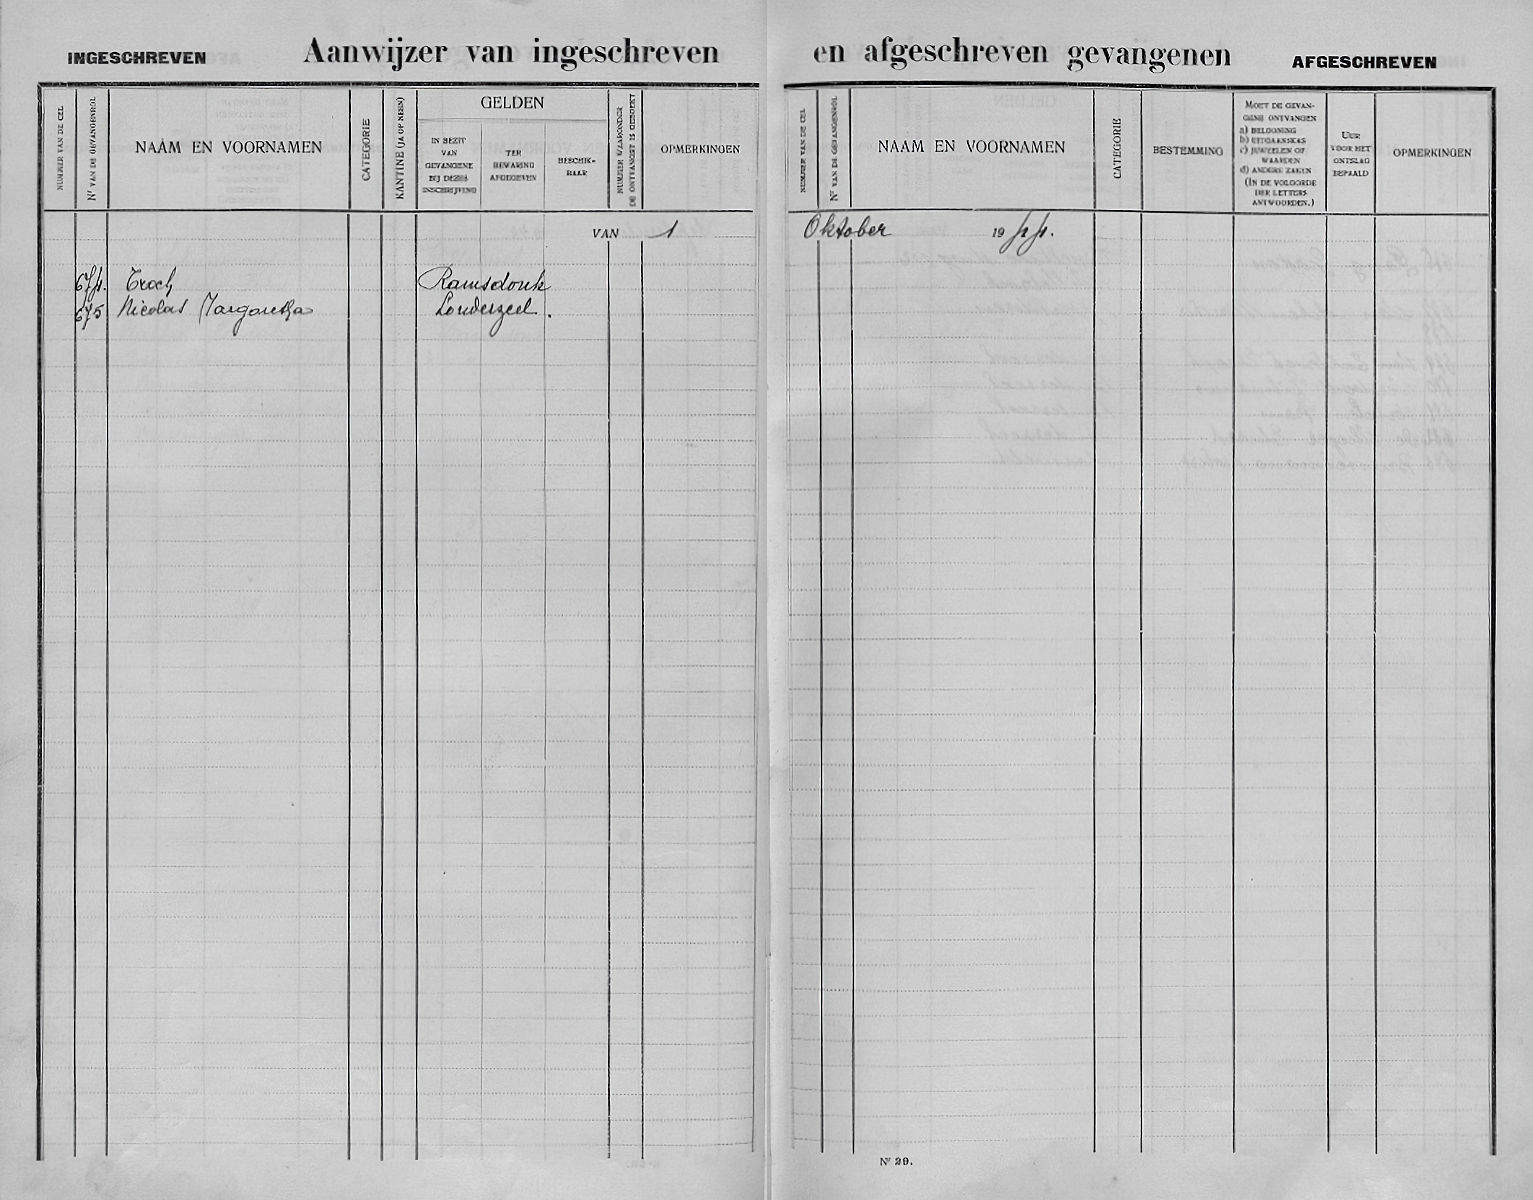 INGESCHREVEN
Aanwijzer van ingeschreven en afgeschreven gevangenen
AFGESCHREVEN
NUMMER VAN DE CEL
Nr VAN DE GEVANGENROL
NAAM EN VOORNAMEN
CATEGORIE
KANTINE (JA OF NEEN)
GELDEN
IN BEZIT
VAN
GEVANGENE
BIJ DEZES
INSCHRIJVING
TER
BEWARING
AFGEGEVEN
BESCHIK-
BAAR
NUMMER WAARONDER
DE ONTVANGST IS GEBOEKT
OPMERKINGEN
NUMMER VAN DE CEL
Nr VAN DE GEVANGENROL
NAAM EN VOORNAMEN
CATEGORIE
BESTEMMING
MOET DE GEVAN-
GENE ONTVANGEN
a) BELOONING
b) UITGAANSKAS
c) JUWEELEN OF
WAARDEN
d) ANDERE ZAKEN
(IN DE VOLGORDE
DER LETTERS
ANTWOORDEN.)
UUR
VOOR HET
ONTSLAG
BEPAALD
OPMERKINGEN
VAN 1 Oktober 1944.
674. Troch Ramsdonk
675 Nicolas Margaretha Londerzeel.
Nr 29.